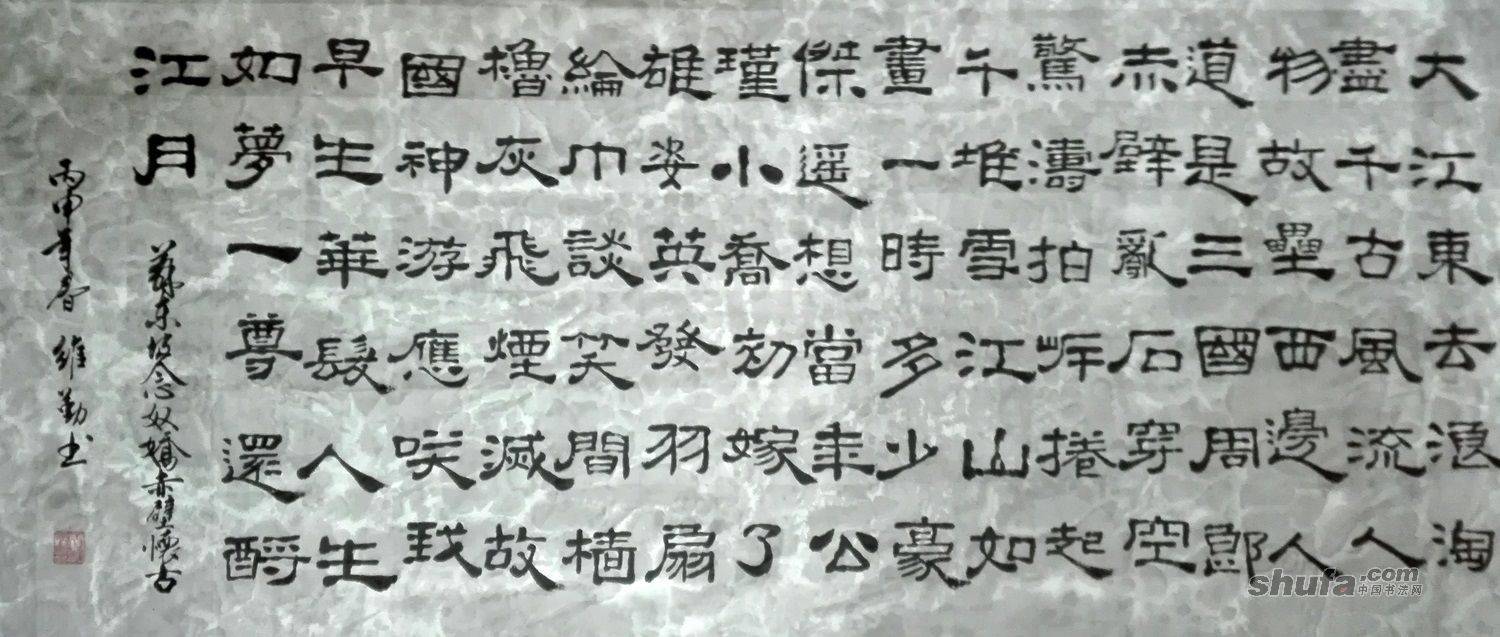 大江東去浪淘
盡千古風流人
物故壘西邊人
道是三國周郎
赤壁亂石穿空
驚濤拍岸捲起
千堆雪江山如
畫一時多少豪
傑遥想當年公
瑾小喬初嫁了
雄姿英發羽扇
綸巾談笑間檣
櫓灰飛煙滅故
國神游應咲我
早生華髮人生
如夢一尊還酹
江月
蘇东坡念奴嬌赤壁懷古
丙申年春 維勤书
shufa.com
中国书法网